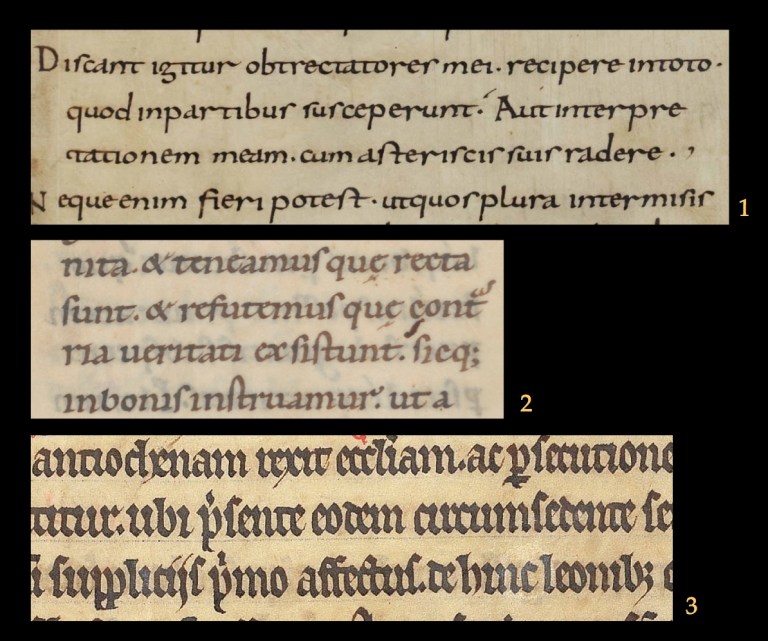 Discant igitur obtrectatores mei. recipere intoto.
quod inpartibus susceperunt. Aut interpre
tationem meam. cum asteriscis suis radere.
Neque enim fieri potest. ut quos plura intermisis
1
nita. & teneamus quę recta
sunt. & refutemus quę cont
ria ueritati exsistunt. sicq;
inbonis instruamur. ut a
2
antiochenam rexit eccliam. ac p̱secutione
titur. ubi p̓sente eodem circumsedente se
i supplicijs p̓mo affectus. de hinc leonibȝ
3